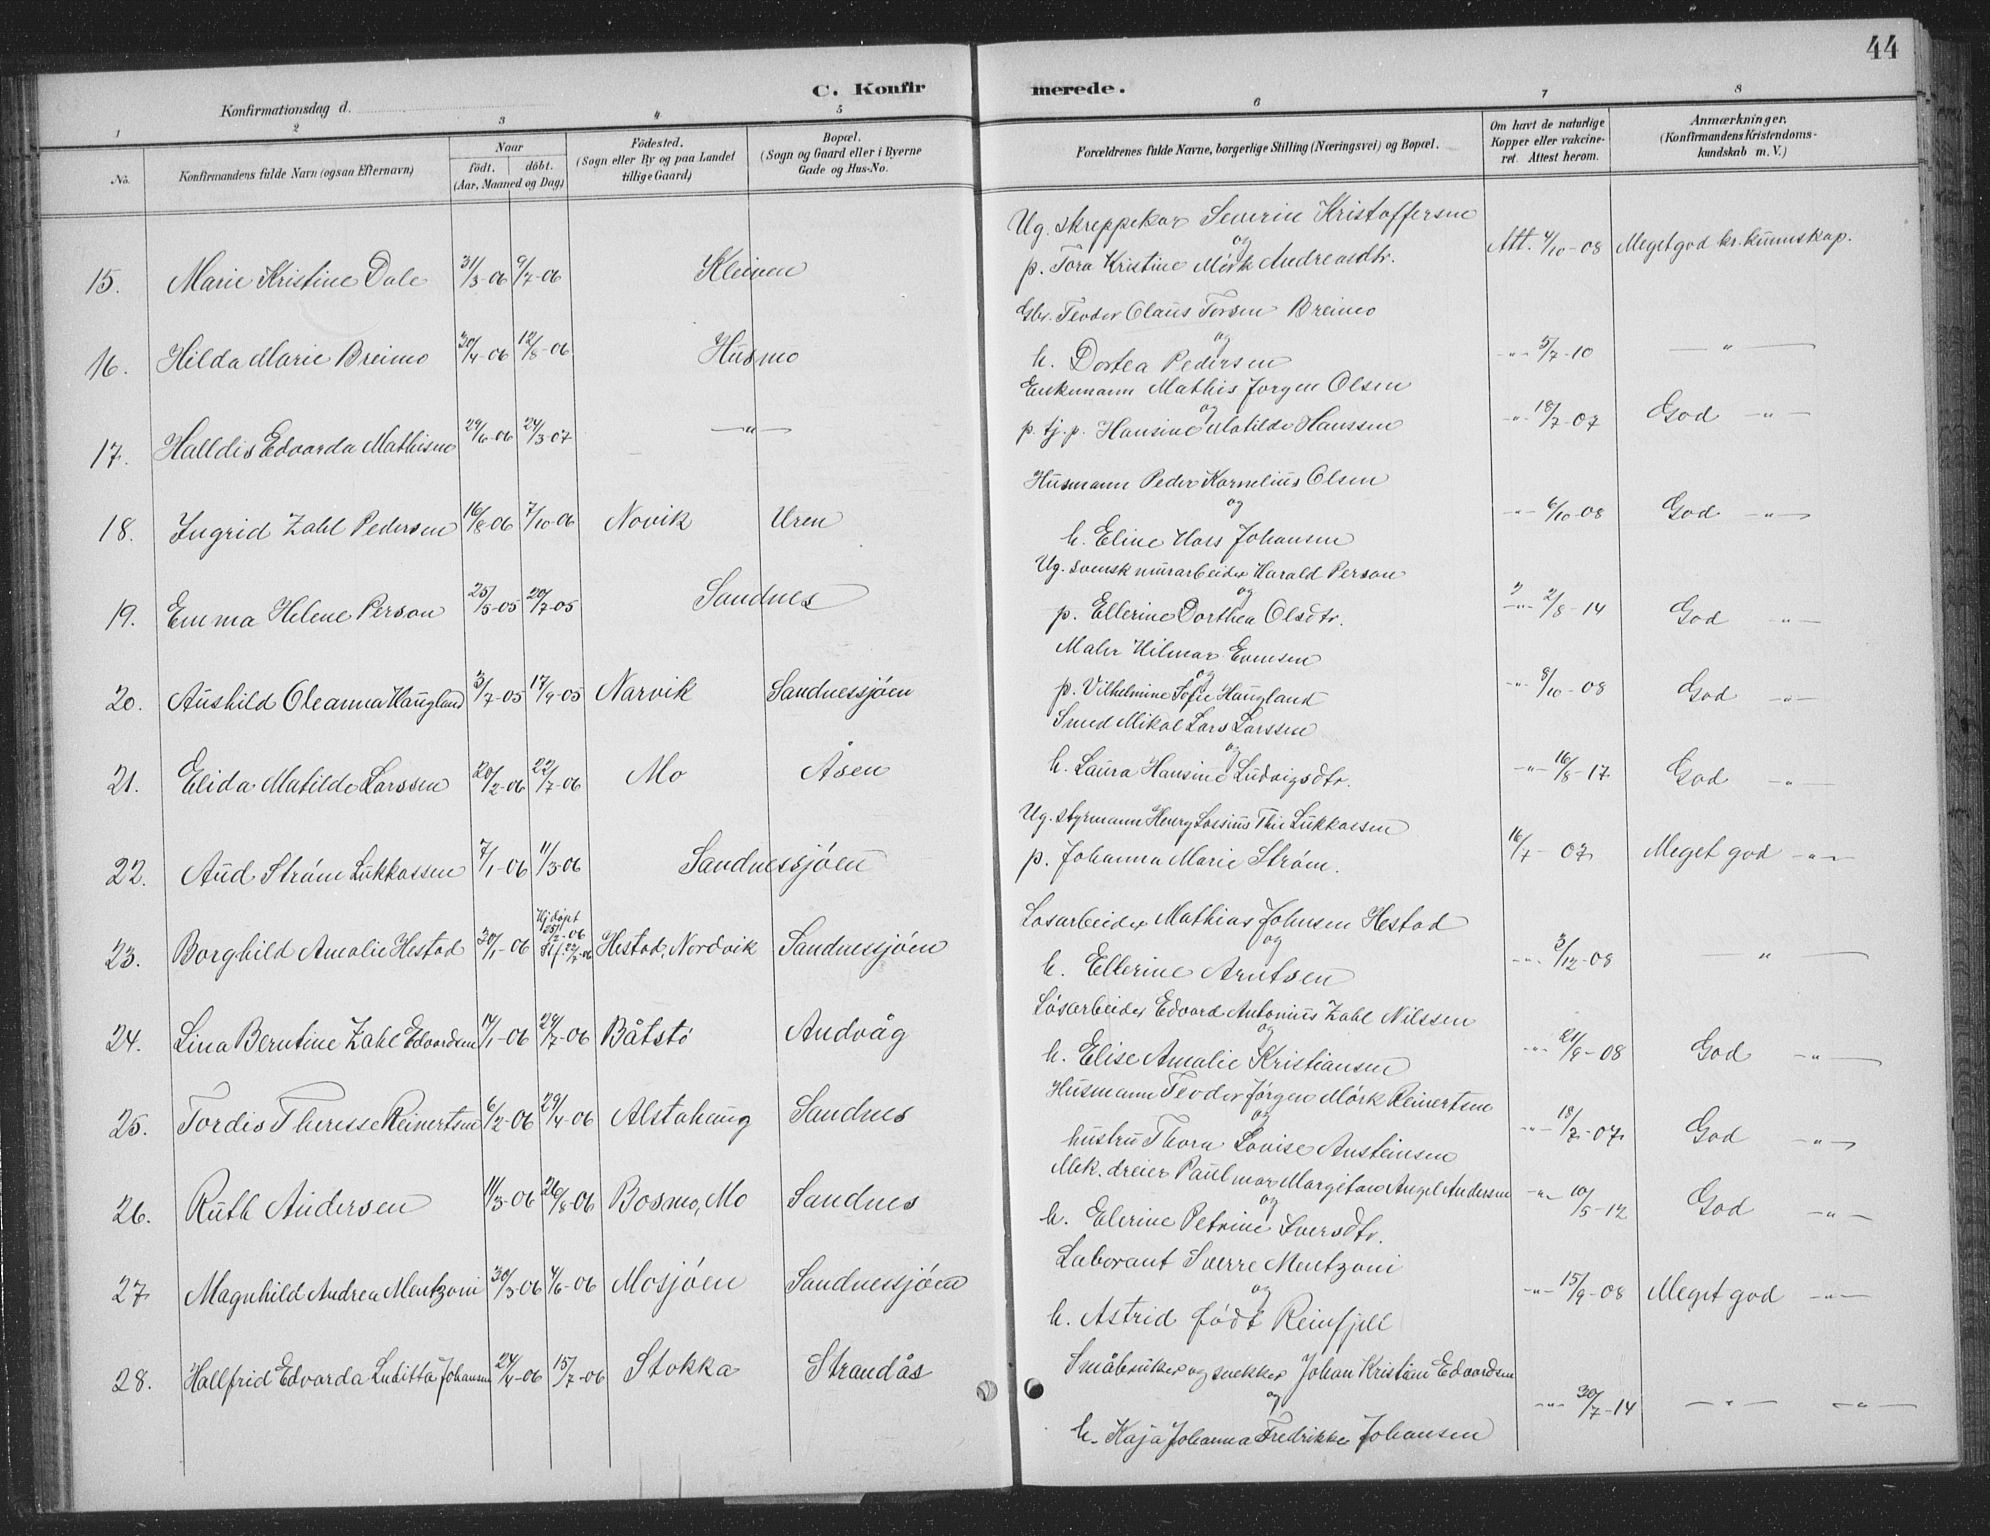 44
C. Konfirmerede.
Konfirmationsdag d.
1 2 3 4 5 6 7 8
No.
Konfirmandens fulde Navn (ogsaa Efternavn)
Naar
födt. döbt.
(Aar, Maaned og Dag)
Födested.
(Sogn eller By og paa Landet
tillige Gaard)
Bopæl.
(Sogn og Gaard eller i Byerne
Gade og Hus-No.
Forældrenes fulde Navne, borgerlige Stilling (Næringsvei) og Bopæl.
Om havt de naturlige
Kopper eller vakcine-
ret. Attest herom.
Anmærkninger.
(Konfirmandens Kristendoms-
kundskab m. V.)
Ug. skreppekar Severin Kristoffersen
og
15. Marie Kristine Dale 31/3-06 9/7-06 Kleiven p. Tora Kristine Mørk Andreasdtr. Att. 4/10-08 Meget god kr. kunnskap.
Gbr. Teodor Claus Torsen Breimo
og
16. Hilda Marie Breimo 30/4-06 12/8-06 Husmo h. Dortea Pedersen -"- 5/7-10 -"-
Enkemann Mathis Jørgen Olsen
og
17. Halldis Edvarda Mathisen 29/6-06 24/3-07 -"- p. tj. p. Hansine Matilde Hanssen -"- 18/7-07 God -"-
Husmann Peder Kornelius Olsen
og
18. Ingrid Zahl Pedersen 16/8-06 7/10-06 Novik Uren h. Eline Hass Johansen -"- 6/10-08 God -"-
Ug. svensk murarbeider Harald Person
og
19. Emma Helene Person 25/5-05 20/7-05 Sandnes p. Ellerine Dorthea Olsdtr. ? -"- 2/8-14 God -"-
Maler Hilmar Evensen
og
20. Aushild Oleanna Haugland 3/7-05 17/9-05 Narvik Sandnessjøen p. Vilhelmine Sofie Haugland -"- 8/10-08 God -"-
Smed Mikal Lars Larssen
og
21. Elida Matilde Larssen 20/2-06 22/7-06 Mo Åsen h. Laura Hansine Ludvigsdtr. -"- 16/8-17 God -"-
Ug. styrmann Henry Lossius Thie Lukkassen
22. Aud Strøm Lukkassen 7/1-06 11/3-06 Sandnessjøen p. Johanna Marie Strøm. 16/7-07 Meget god -"-
Løsarbeider Mathias Johnsen Hestad
og
23. Borghild Amalie Hestad 30/1-06 Hj.døpt -06 Stf. 22/7-06 Hestad, Nordvik Sandnessjøen h. Ellerine Arntsen -"- 3/12-08 -"-
Løsarbeider Edvard Antonius Zahl Nilssen
og
24. Lina Berntine Zahl Edvardsen 14/1-06 29/7-06 Båtstø Andvåg h. Elise Amalie Kristiansen -"- 21/9-08 God -"-
Husmann Teodor Jørgen Mørk Reinertsen
og
25. Tordis Therese Reinertsen 6/2-06 29/4-06 Alstahaug Sandnes hustru Thora Lovise Austeinsen -"- 18/7-07 God -"-
Mek. dreier Paul mar Margitan Angel Andersen
og
26. Ruth Andersen 11/3-06 26/8-06 Bosmo, Mo Sandnes h. Elerine Petrine Iversdtr. -"- 10/5-12 God -"-
Laborant Sverre Mentzoni
og
27 Magnhild Andrea Mentzoni 30/3-06 4/6-06 Mosjøen Sandnessjøen h. Astrid født Reinfjell -"- 15/9-08 Meget god -"-
Småbruker og snekker Johan Kristian Edvardsen
og
28. Hallfrid Edvarda Luditta Johansen 24/4-06 15/7-06 Stokka Strandås h. Kaja Johanna Fredrikke Johansen -"- 30/7-14 -"- -"-